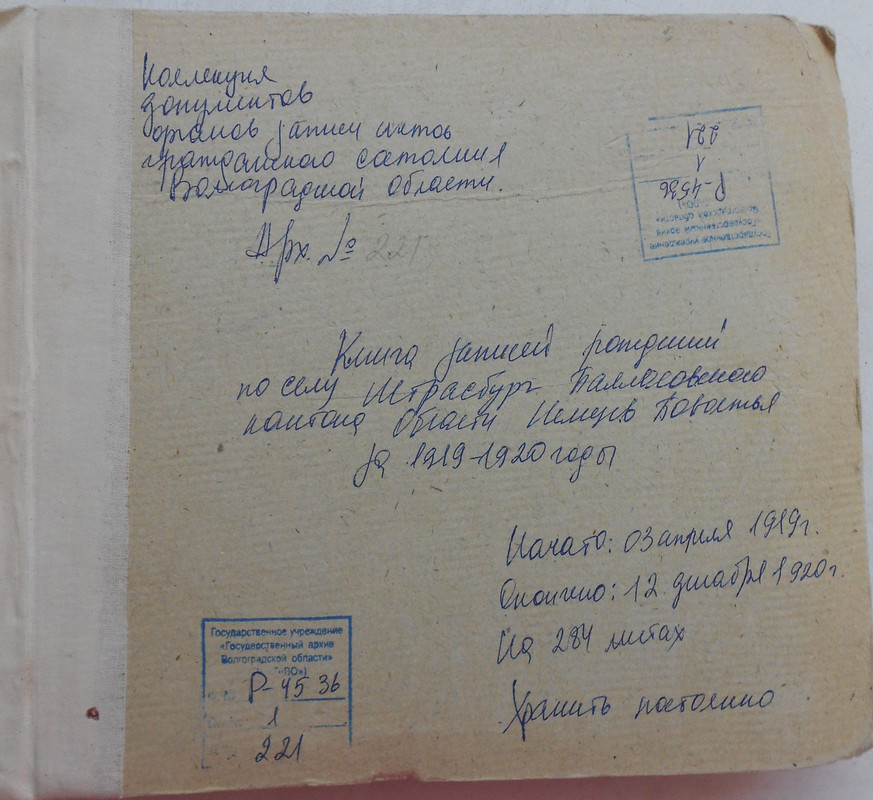 Коллекция
документов
органов записи актов
гражданского состояния
Волгоградской области.
Арх. № 221
Р-4536
1
221
Книга записей рождений
по селу Штрасбург Палласовского
кантона Области Немцев Поволжья
за 1919-1920 годы
Начато: 03 апреля 1919г.
Окончено: 12 декабря 1920г.
На 284 листах
Хранить постоянно
Государственное учреждение
«Государственный архив
Волгоградской области»
Р-4536
1
221